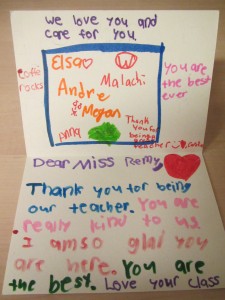 we love you and
care for you.
Elsa
Malachi
Café
rocks
Andre
Megan
You are
the best
ever
anna
Thank
you for
being a
Dear Miss Remy,
Thank you for being
our teacher. You are
really kind to us
I am so glad you
are here. You are
the best. Love your class